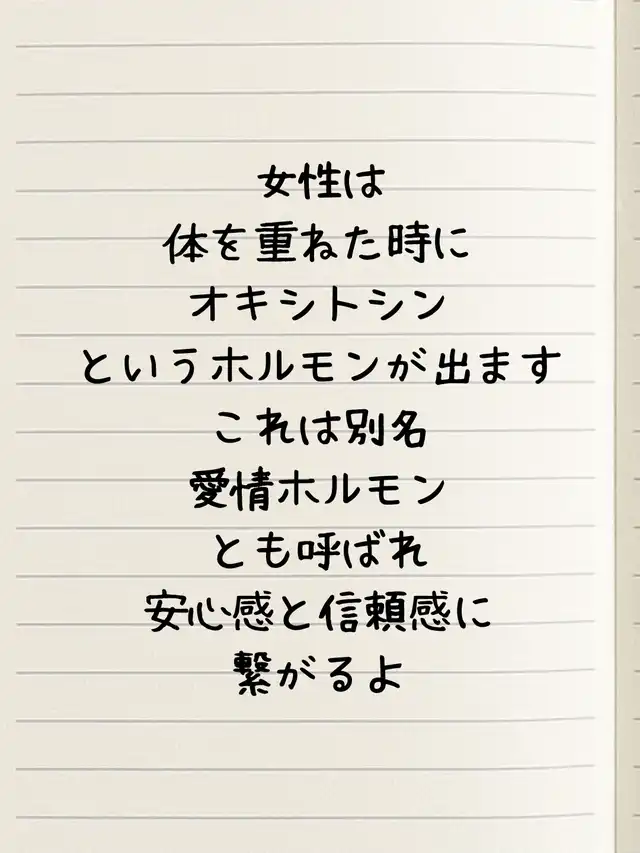 女性は
体を重ねた時に
オキシトシン
というホルモンが出ます
これは別名
愛情ホルモン
とも呼ばれ
安心感と信頼感に
繋がるよ